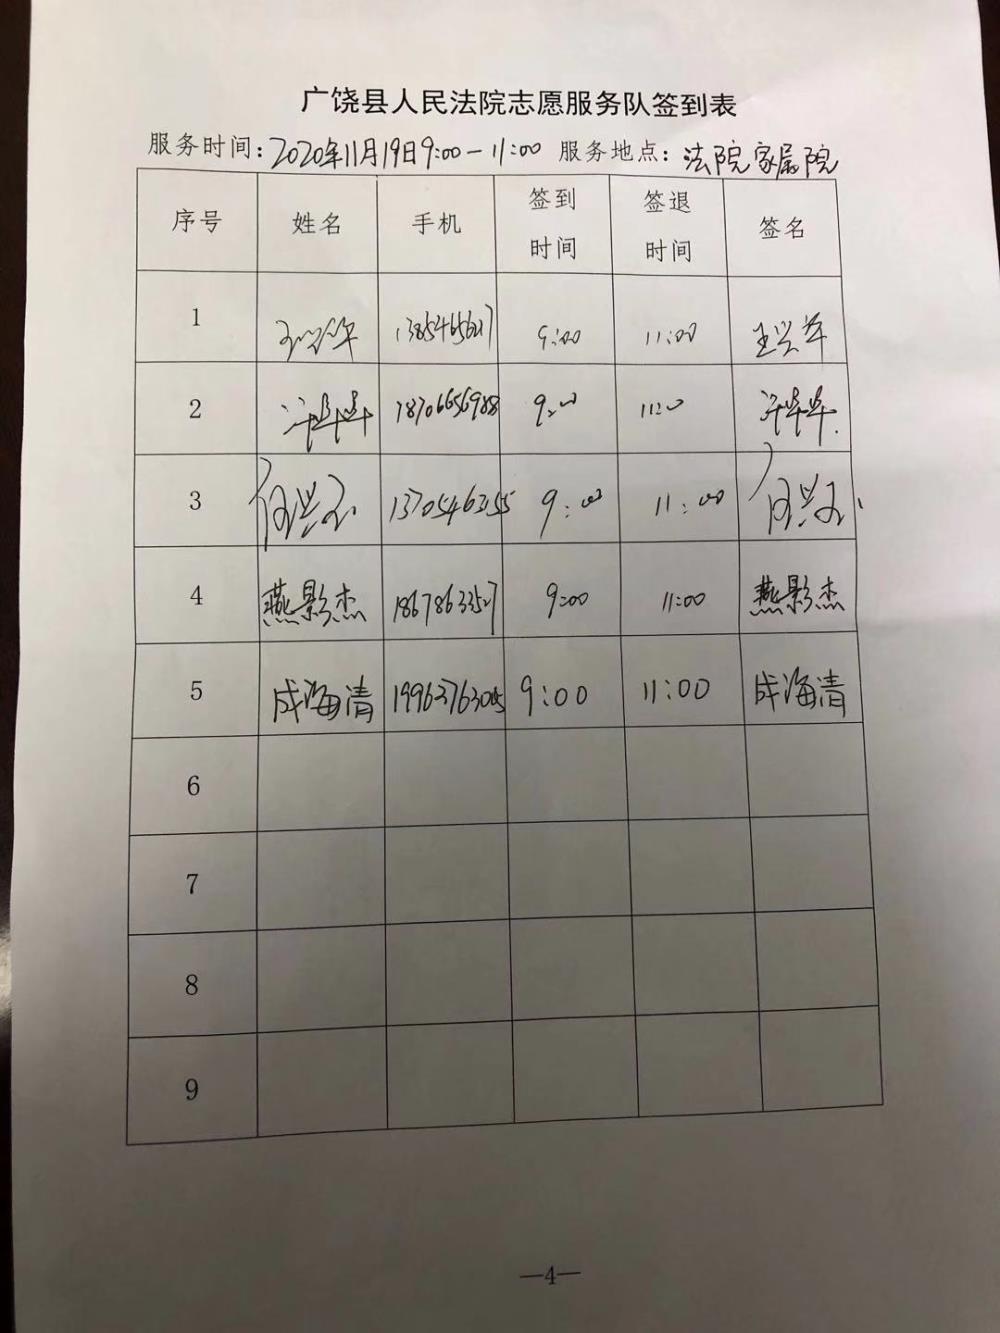 广饶县人民法院志愿服务队签到表
服务时间：2020年11月19日9:00-11:00 服务地点：法院家属院
序号 姓名 手机 签到时间 签退时间 签名
1 9:00 11:00 王兴华
2 18706656988 9:00 11:00
3 13705463155 9:00 11:00
4 燕影杰 18678633527 9:00 11:00 燕影杰
5 成海清 19963763005 9:00 11:00 成海清
6
7
8
9
—4—